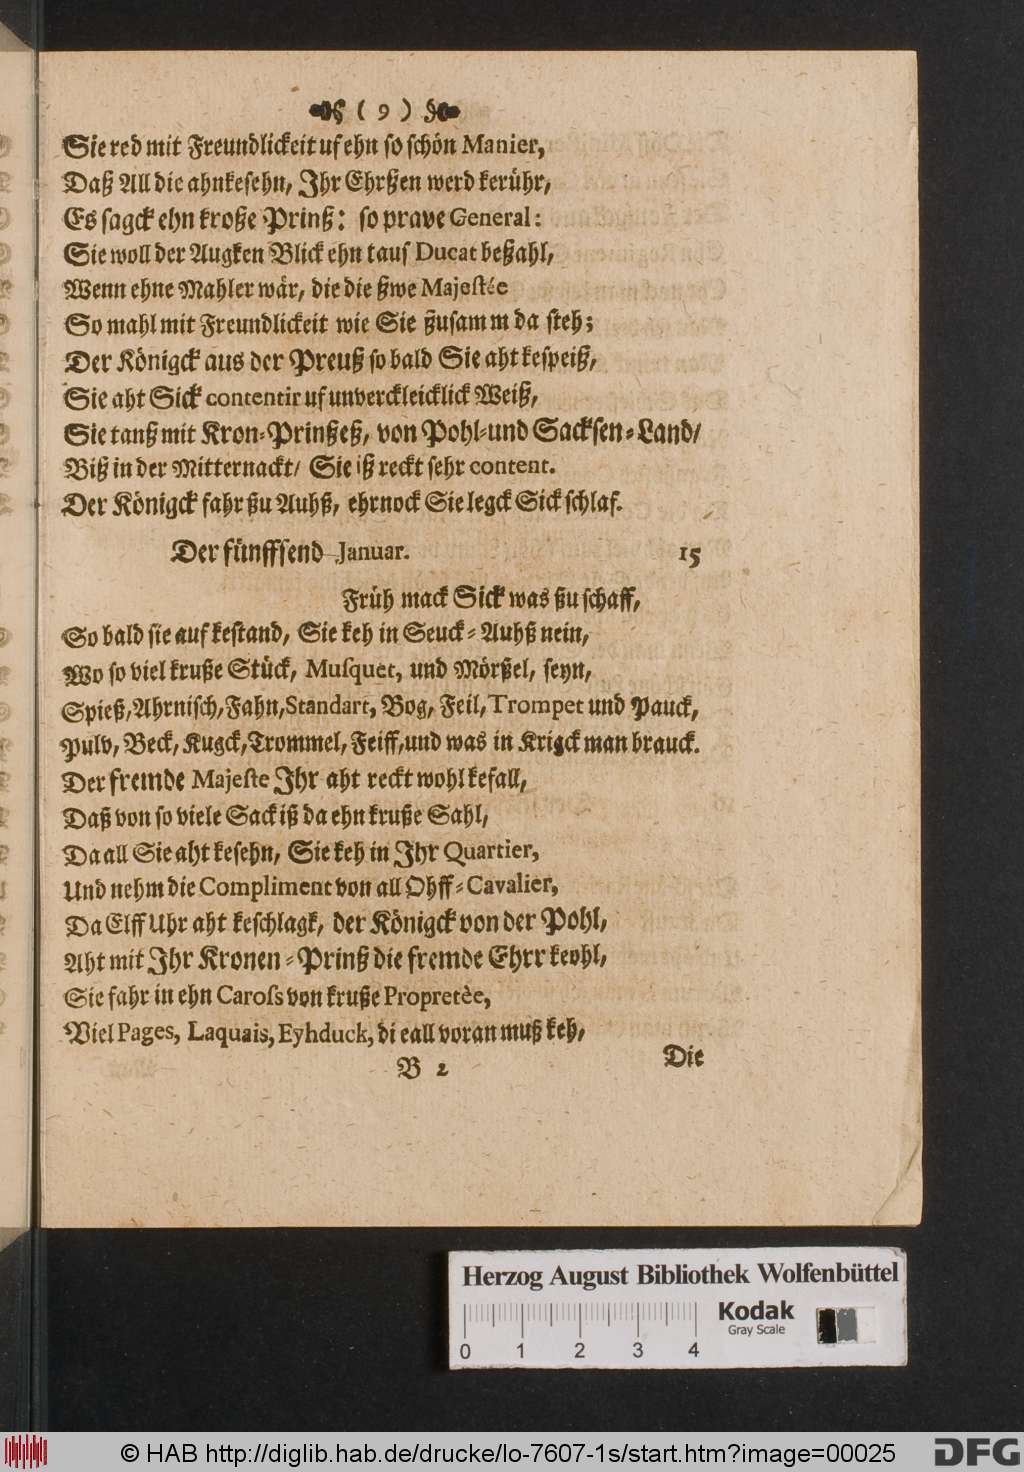 ( 9 )
Sie red mit Freundlickeit uf ehn so schön Manier,
Daß All die ahnkesehn, Ihr Ehrßen werd kerühr,
Es sagck ehn kroße Prinß: so prave General:
Sie woll der Augken Blick ehn taus Ducat beßahl,
Wenn ehne Mahler wär, die die ßwe Majestée
So mahl mit Freundlickeit wie Sie ßusamm da steh;
Der Königck aus der Preuß so bald Sie aht kespeiß,
Sie aht Sick contentir uf unverckleicklick Weiß,
Sie tanß mit Kron-Prinßeß, von Pohl-und Sacksen-Land/
Biß in der Mitternackt/ Sie iß reckt sehr content.
Der Königck fahr ßu Auhß, ehrnock Sie legck Sick schlaf.
Der fünffsend Januar. 15
Früh mack Sick was ßu schaff,
So bald sie auf kestand, Sie keh in Seuck-Auhß nein,
Wo so viel kruße Stück, Musquet, und Mörßel, seyn,
Spieß, Ahrnisch, Fahn, Standart, Bog, Feil, Trompet und Pauck,
Pulv, Beck, Kugck, Trommel, Feiff, und was in Krigck man brauck.
Der fremde Majeste Ihr aht reckt wohl kefall,
Daß von so viele Sack iß da ehn kruße Sahl,
Da all Sie aht kesehn, Sie keh in Ihr Quartier,
Und nehm die Compliment von all Ohff-Cavalier,
Da Elff Uhr aht keschlagk, der Königck von der Pohl,
Aht mit Ihr Kronen-Prinß die fremde Ehrr keohl,
Sie fahr in ehn Caross von kruße Propretèe,
Viel Pages, Laquais, Eyhduck, di eall voran muß keh,
B 2 Die
Herzog August Bibliothek Wolfenbüttel
Kodak
Gray Scale
0 1 2 3 4
© HAB http://diglib.hab.de/drucke/lo-7607-1s/start.htm?image=00025
DFG